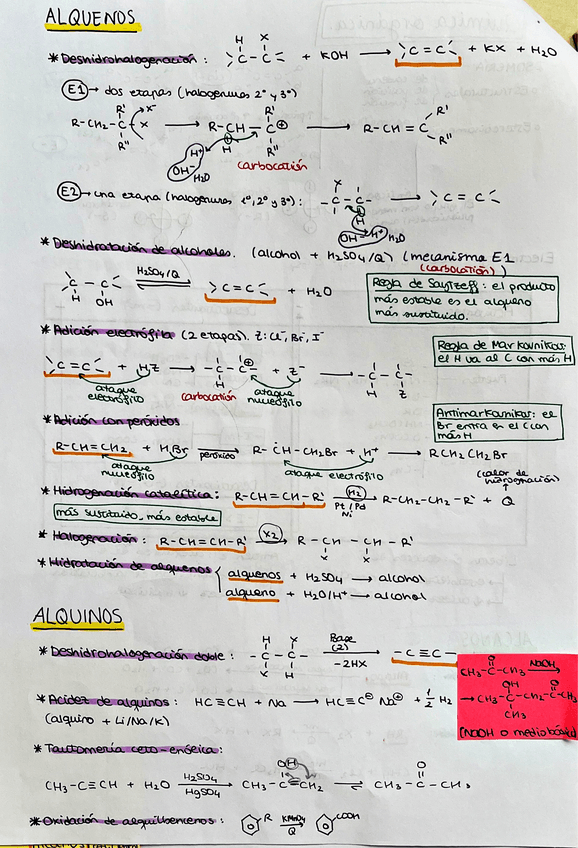 ALQUENOS
* Deshidrohalogenación: >C(H)-C(X)< + KOH → >C=C< + KX + H₂O
E1 → dos etapas (halogenuros 2º y 3º)
R-CH₂-C(R')(R'')-X → R-CH-C⊕(R')(R'') → R-CH=C(R')(R'')
H⁺ H
OH⁻ H₂O carbocatión
E2 → una etapa (halogenuros 1º, 2º y 3º): -C(X)-C(H)- → >C=C<
OH⁻ H⁺ H₂O
* Deshidratación de alcoholes. (alcohol + H₂SO₄/Q) (mecanismo E1
(carbocatión) )
>C(H)-C(OH)< H₂SO₄/Q >C=C< + H₂O
Regla de Saytzeff: el producto
más estable es el alqueno
más sustituido.
* Adición electrófila (2 etapas). Z: Cl⁻, Br⁻, I⁻
Regla de Markovnikov:
el H va al C con más H
>C=C< + HZ → -C(H)-C⊕- + Z⁻ → -C(H)-C(Z)-
ataque electrófilo carbocatión ataque nucleófilo
* Adición con peróxidos
Antimarkovnikov: el
Br entra en el C con
más H
R-CH=CH₂ + HBr → peróxido R-ĊH-CH₂Br + H⁺ → RCH₂CH₂Br
ataque nucleófilo ataque electrófilo
(calor de hidrogenación)
* Hidrogenación catalítica: R-CH=CH-R' H₂ → Pt/Pd Ni R-CH₂-CH₂-R' + Q
más sustituido, más estable
* Halogenación: R-CH=CH-R' X₂ → R-CH(X)-CH(X)-R'
* Hidratación de alquenos { alquenos + H₂SO₄ → alcohol
alqueno + H₂O/H⁺ → alcohol
ALQUINOS
* Deshidrohalogenación doble: -C(H)(X)-C(X)(H)- Base (2) → -2HX -C≡C-
CH₃-C(=O)-CH₃ NaOH →
→ CH₃-C(OH)(CH₃)-CH₂-C(=O)-CH₃
(NaOH o medio básico)
* Acidez de alquinos: HC≡CH + Na → HC≡C⊖ Na⊕ + ½ H₂
(alquino + Li/Na/K)
* Tautomería ceto-enólica:
CH₃-C≡CH + H₂O H₂SO₄ → HgSO₄ CH₃-C(OH)=CH₂ ⇌ CH₃-C(=O)-CH₃
* Oxidación de alquilbencenos: R KMnO₄ → Q COOH